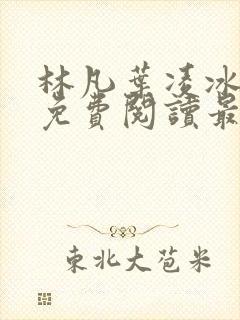 林凡葉凌冰
免費閱讀最
東北大苞米